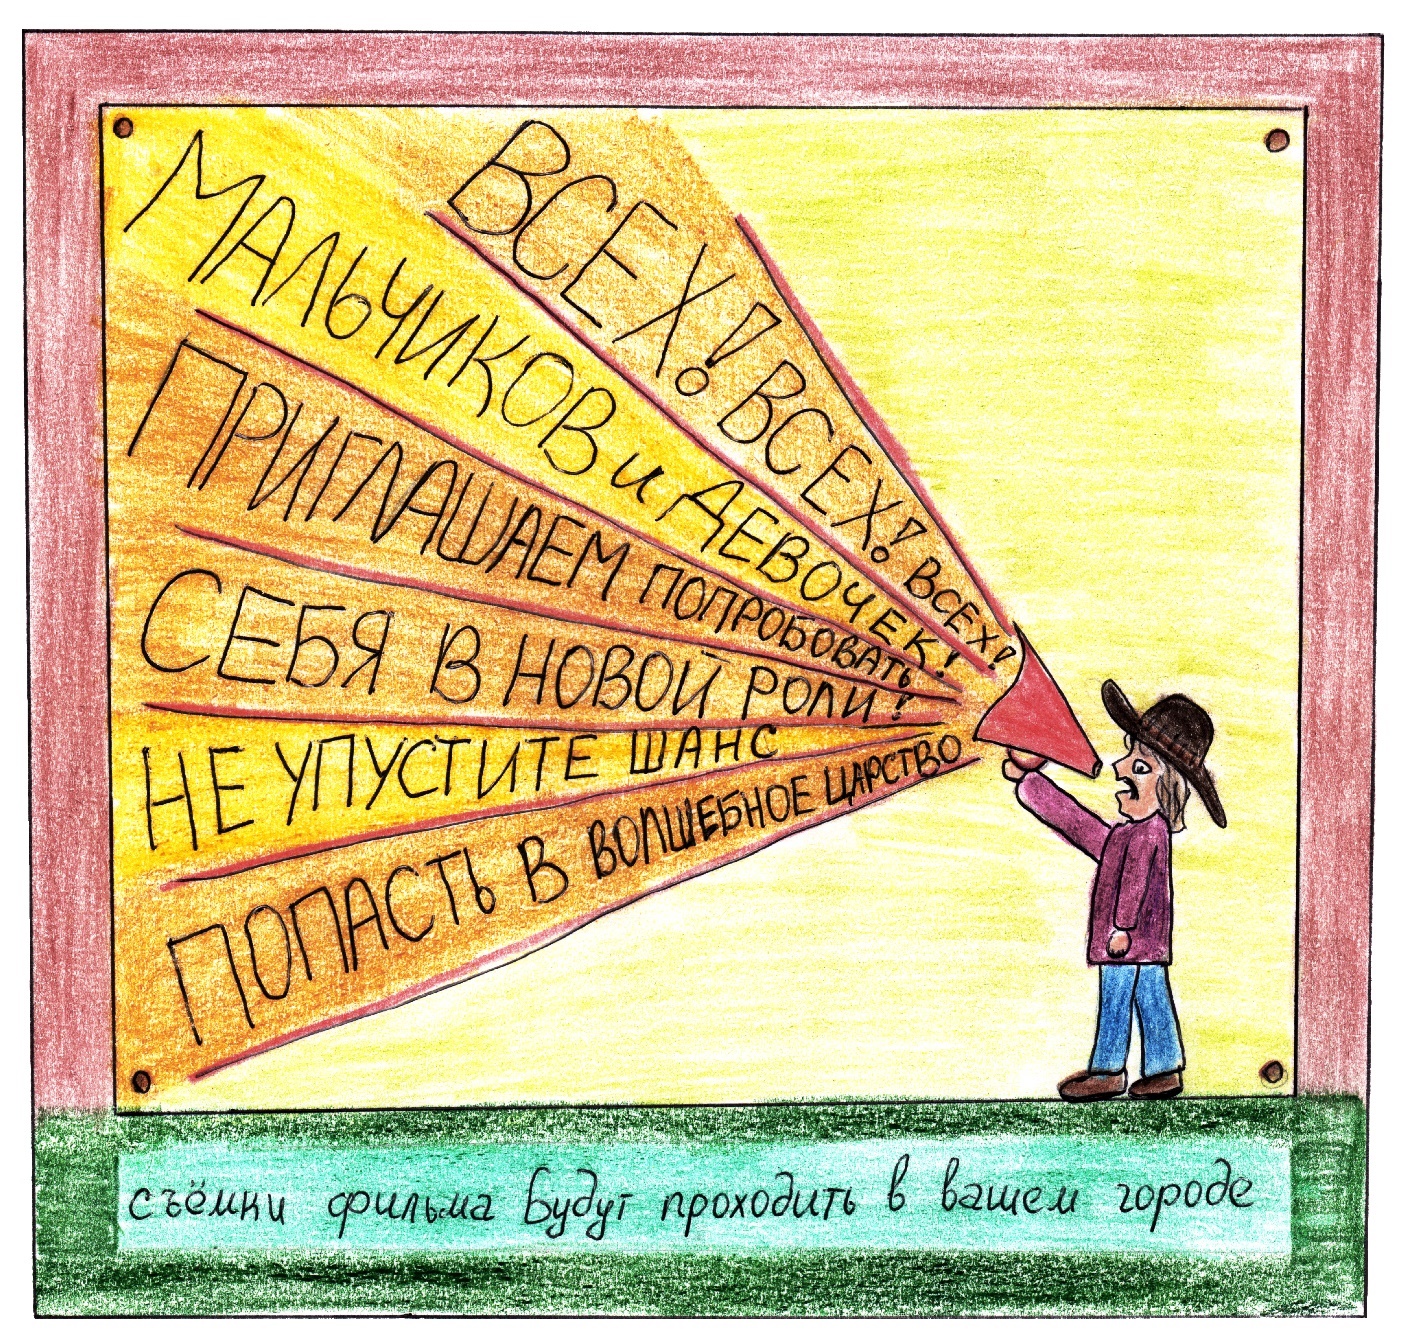 ВСЕХ! ВСЕХ! ВСЕХ!
МАЛЬЧИКОВ и ДЕВОЧЕК!
ПРИГЛАШАЕМ ПОПРОБОВАТЬ
СЕБЯ В НОВОЙ РОЛИ!
НЕ УПУСТИТЕ ШАНС
ПОПАСТЬ В ВОЛШЕБНОЕ ЦАРСТВО
съёмки фильма будут проходить в вашем городе